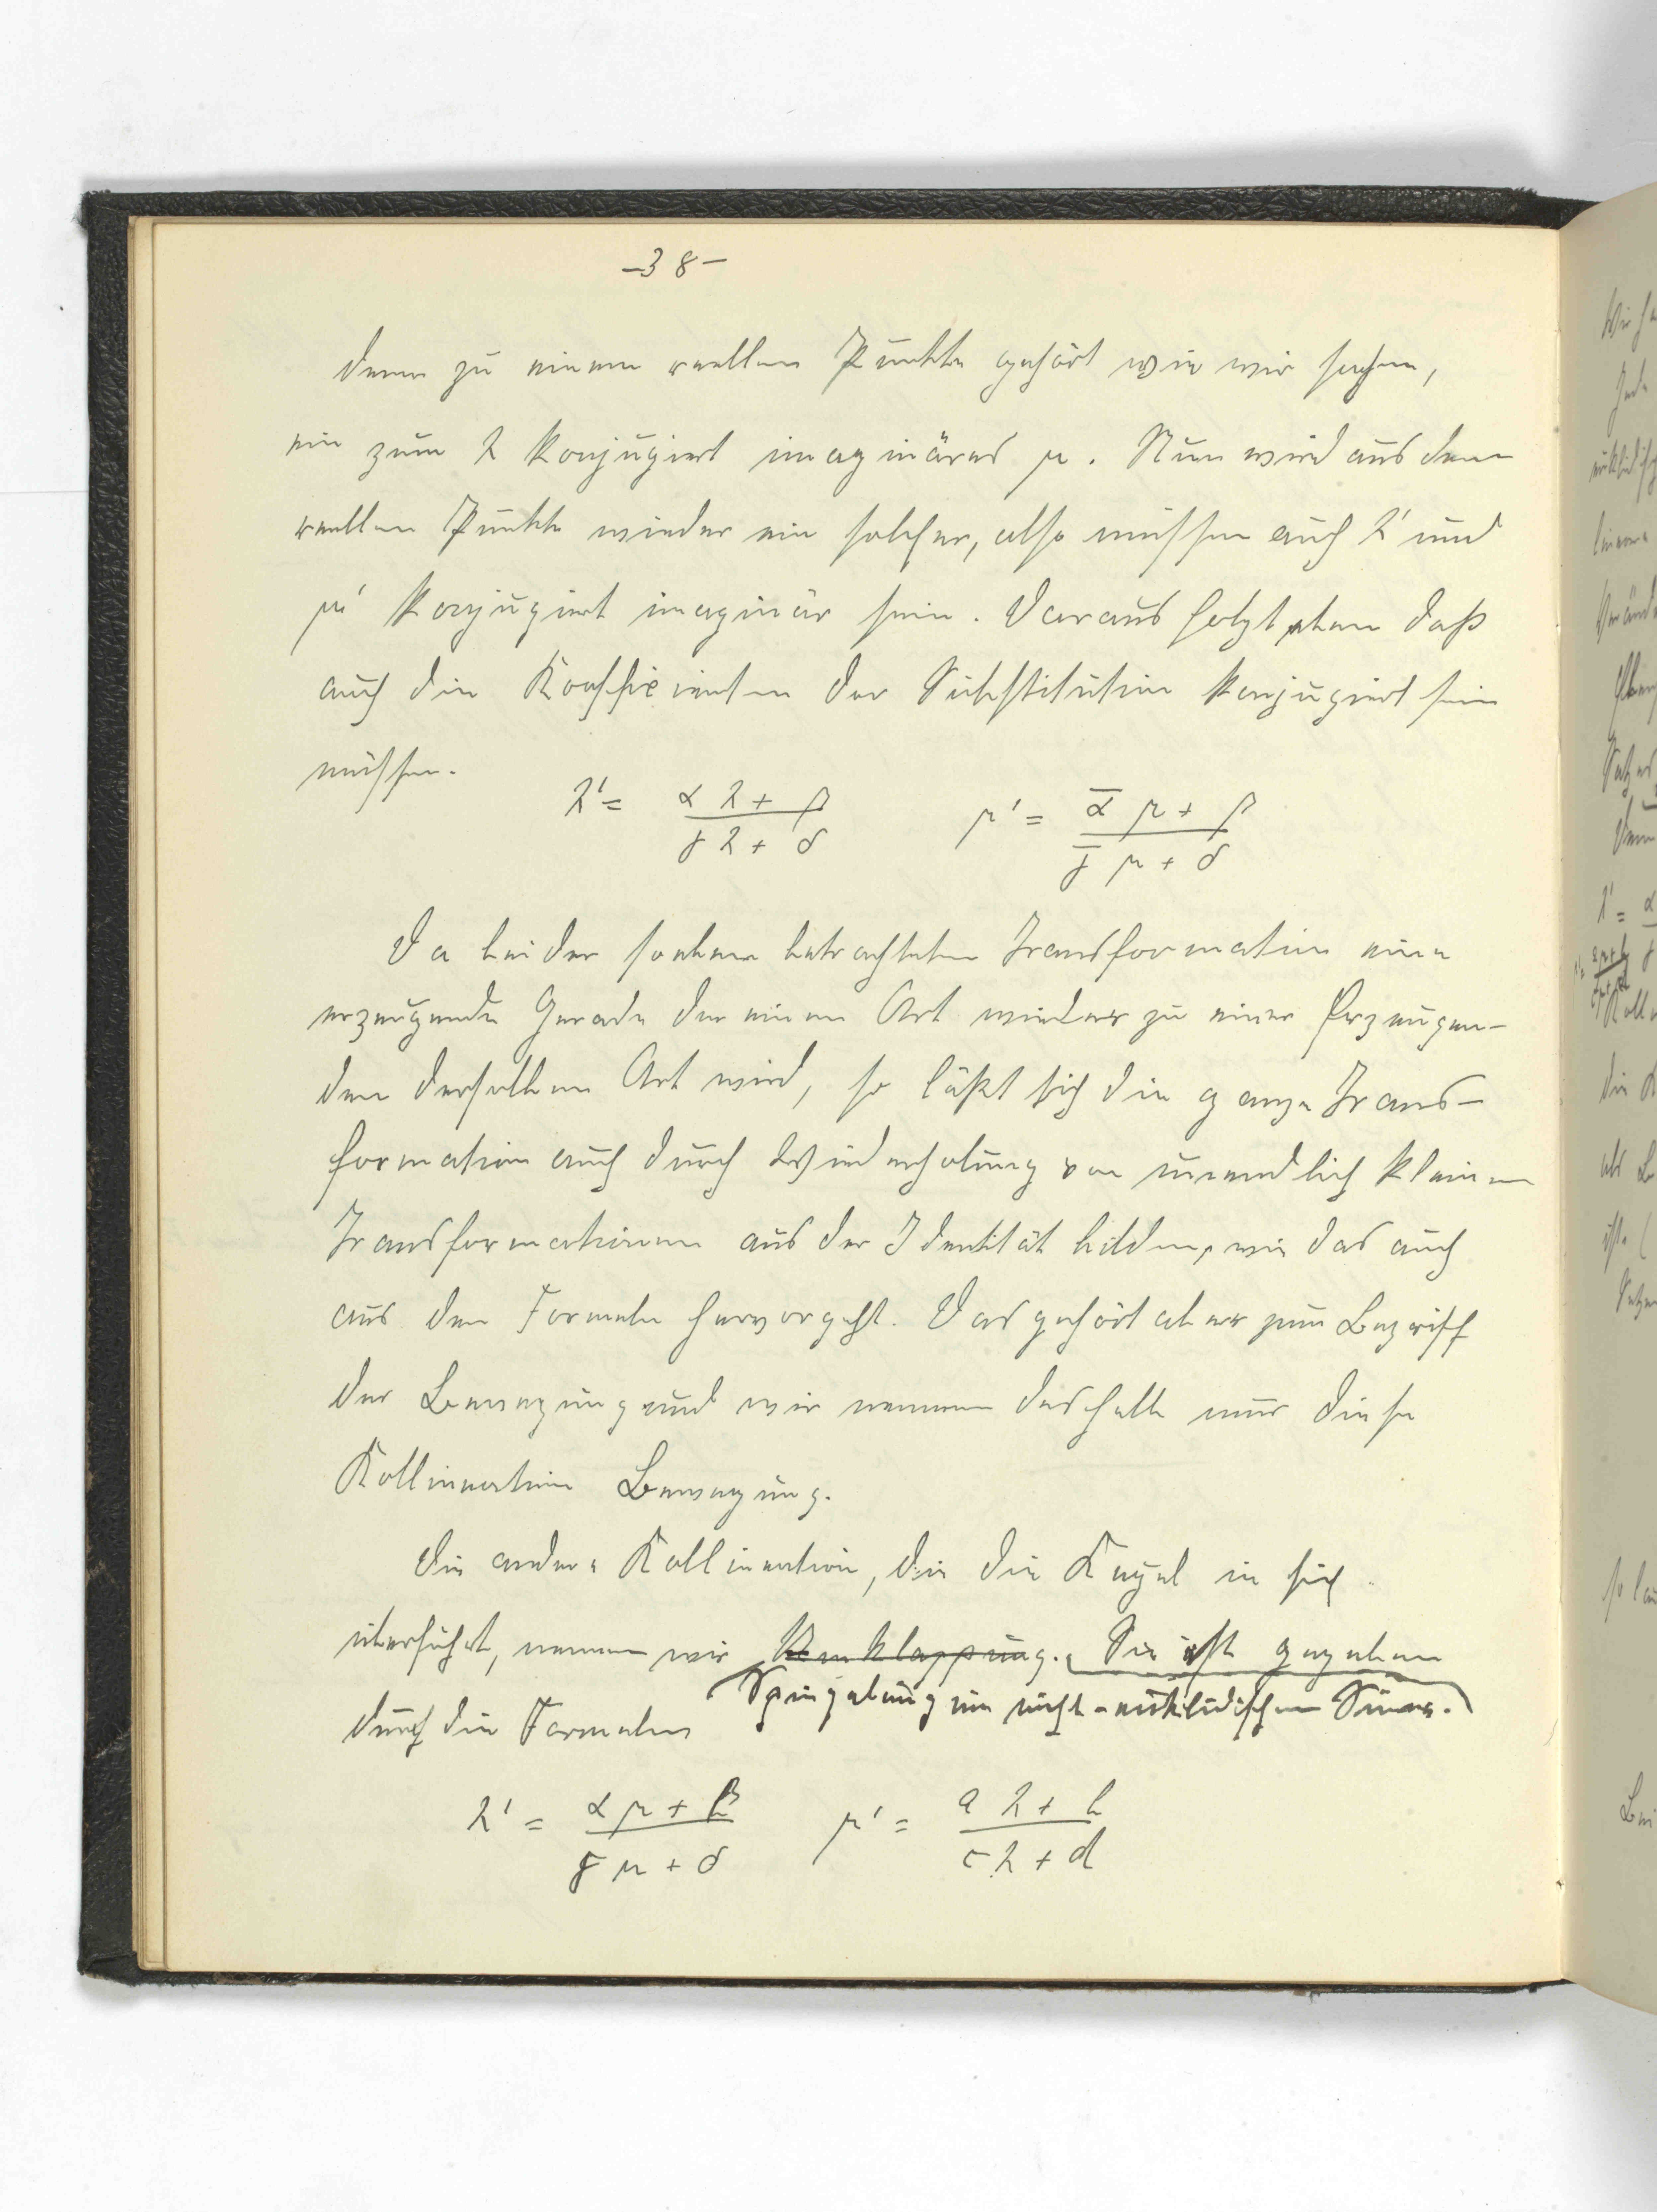 – 38 –
denn zu einem reellen Punkte gehört wie wir sahen,
ein zum λ konjugiert imaginäres μ. Nun wird aus dem
reellen Punkte wieder ein solcher, also müssen auch λ' und
μ' konjugiert imaginär sein. Daraus folgt eben daß
auch die Koeffizienten der Substitution konjugiert sein
müssen.
λ' = (αλ + β)/(γλ + δ) μ' = (ᾱμ + β)/(γ̄μ + δ)
Da bei der soeben betrachteten Transformation eine
erzeugende Gerade der einen Art wieder zu einer Erzeugen-
den derselben Art wird, so läßt sich die ganze Trans-
formation auch durch Wiederholung von unendlich kleinen
Transformationen aus der Identität bilden, wie das auch
aus den Formeln hervorgeht. Das gehört aber zum Begriff
der Bewegung und wir nennen deshalb nur diese
Kollineation Bewegung.
Die andere Kollineation, die die Kugel in sich
überführt, nennen wir Umklappung. Sie ist gegeben
Spiegelung im nicht-euklidischen Sinne.
durch die Formeln
λ' = (αμ + β)/(γμ + δ) μ' = (aλ + b)/(cλ + d)